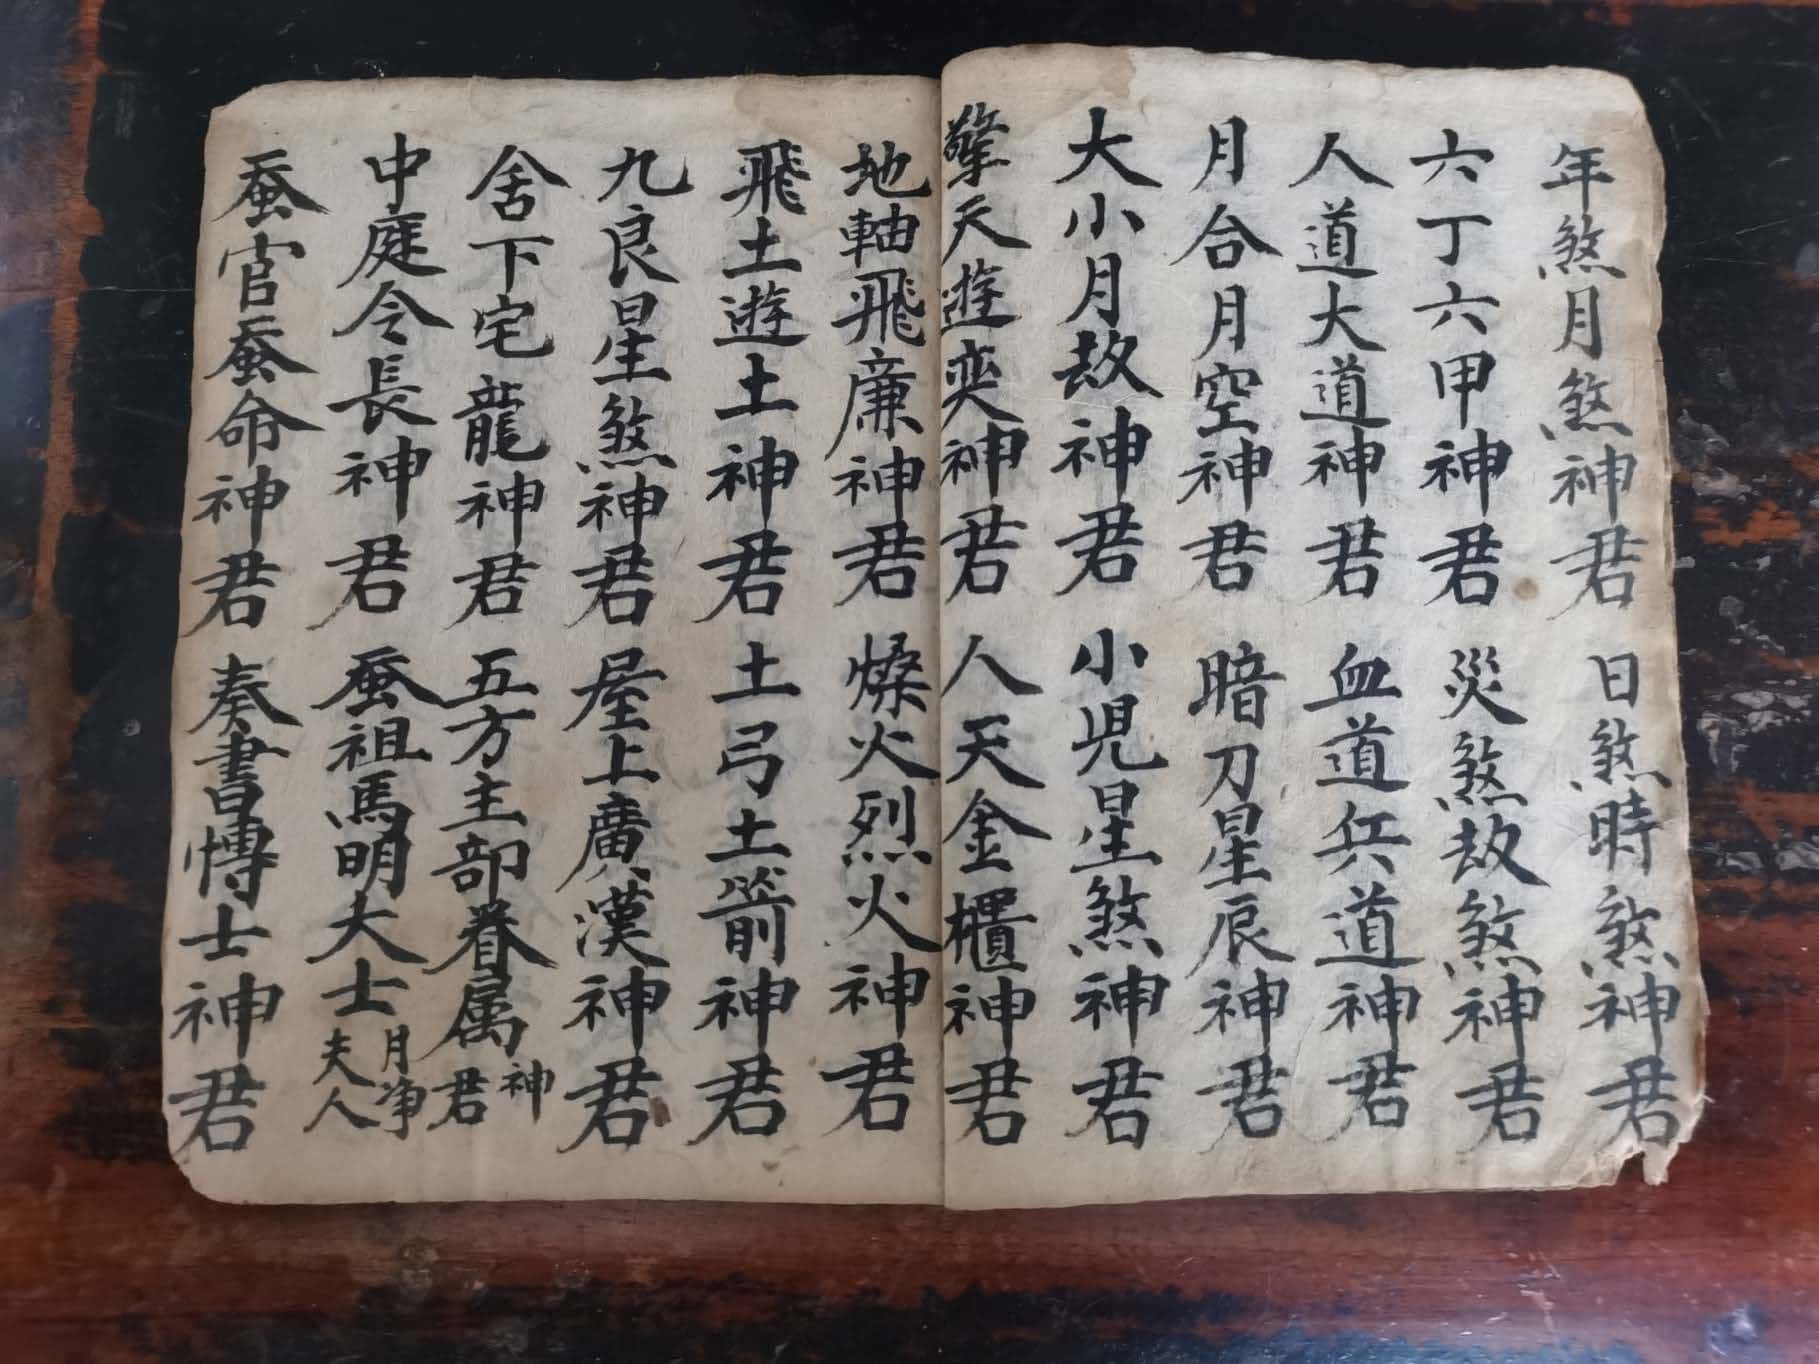 年煞月煞神君 日煞時煞神君
六丁六甲神君 災煞劫煞神君
人道大道神君 血道兵道神君
月合月空神君 暗刀星辰神君
大小月劫神君 小児星煞神君
擎天遊奕神君 人天金櫃神君
地軸飛廉神君 燥火烈火神君
飛土遊土神君 土弓土箭神君
九良星煞神君 屋上廣漢神君
舍下宅龍神君 五方主部眷属神君
中庭令長神君 蚕祖馬明大士月净夫人
蚕官蚕命神君 奏書博士神君